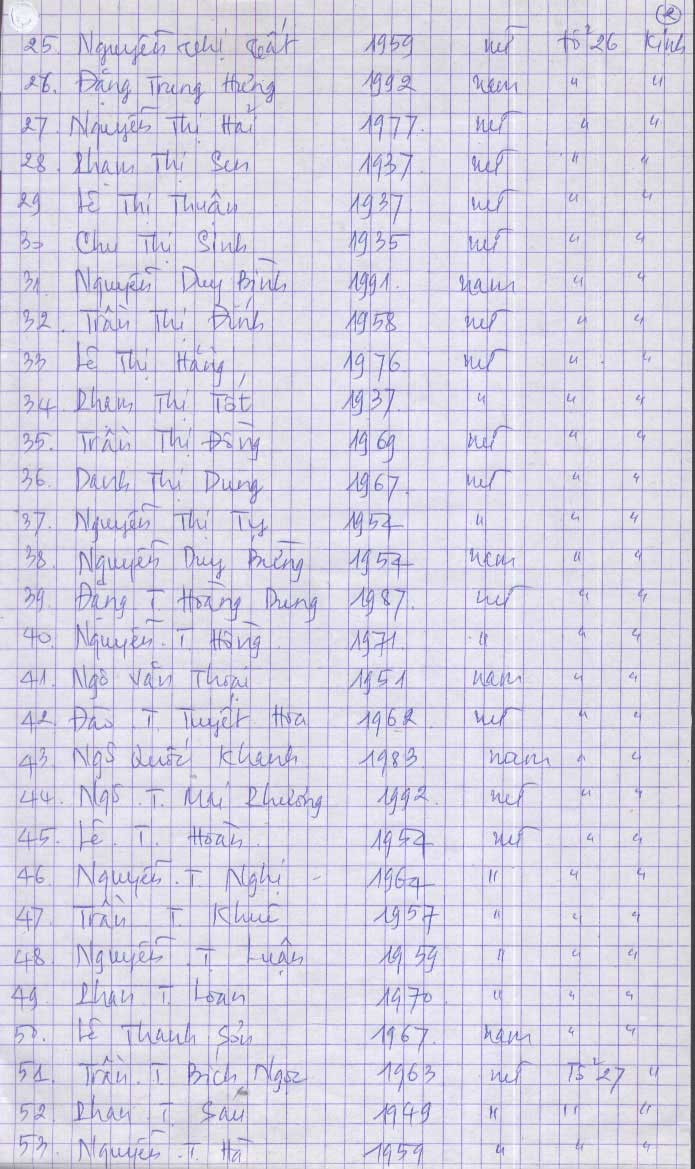 2
25. Nguyễn Thị Tất 1959 nữ tổ 26 Kinh
26. Đặng Trung Hưng 1992 nam " "
27. Nguyễn Thị Hải 1977. nữ " "
28. Phạm Thị Sen 1937. nữ " "
29 Lê Thị Thuân 1937. nữ " "
30 Chu Thị Sinh 1935 nữ " "
31. Nguyễn Duy Bình 1991. nam " "
32. Trần Thị Đính 1958 nữ " "
33 Lê Thị Hằng 1976 nữ " "
34. Phạm Thị Tốt 1937. " " "
35. Trần Thị Đồng 1969 nữ " "
36. Danh Thị Dung 1967. nữ " "
37. Nguyễn Thị Tỵ 1954 " " "
38. Nguyễn Duy 1954 nam " "
39. Đặng T. Hoàng Dung 1987. nữ " "
40. Nguyễn. T. Hồng 1971. " " "
41. Ngô Văn Thoại 1951 nam " "
42. Đào . T. Tuyết Hoa 1962. nữ " "
43. Ngô Quốc Khanh 1983. nam " "
44. Ngô . T. Mai Phương 1992. nữ " "
45. Lê. T. Hoàn. 1954 nữ " "
46 Nguyễn. T. Nghị 1964 " " "
47. Trần T. Khuê 1957 " " "
48. Nguyễn. T. Luận 1959 " " "
49. Phan T. Loan 1970. " " "
50. Lê Thanh Sơn 1967. nam " "
51. Trần. T. Bích Ngọc 1963 nữ Tổ 27 "
52. Phan. T. Sáu 1949 " " "
53. Nguyễn. T. Hà 1959 " " "